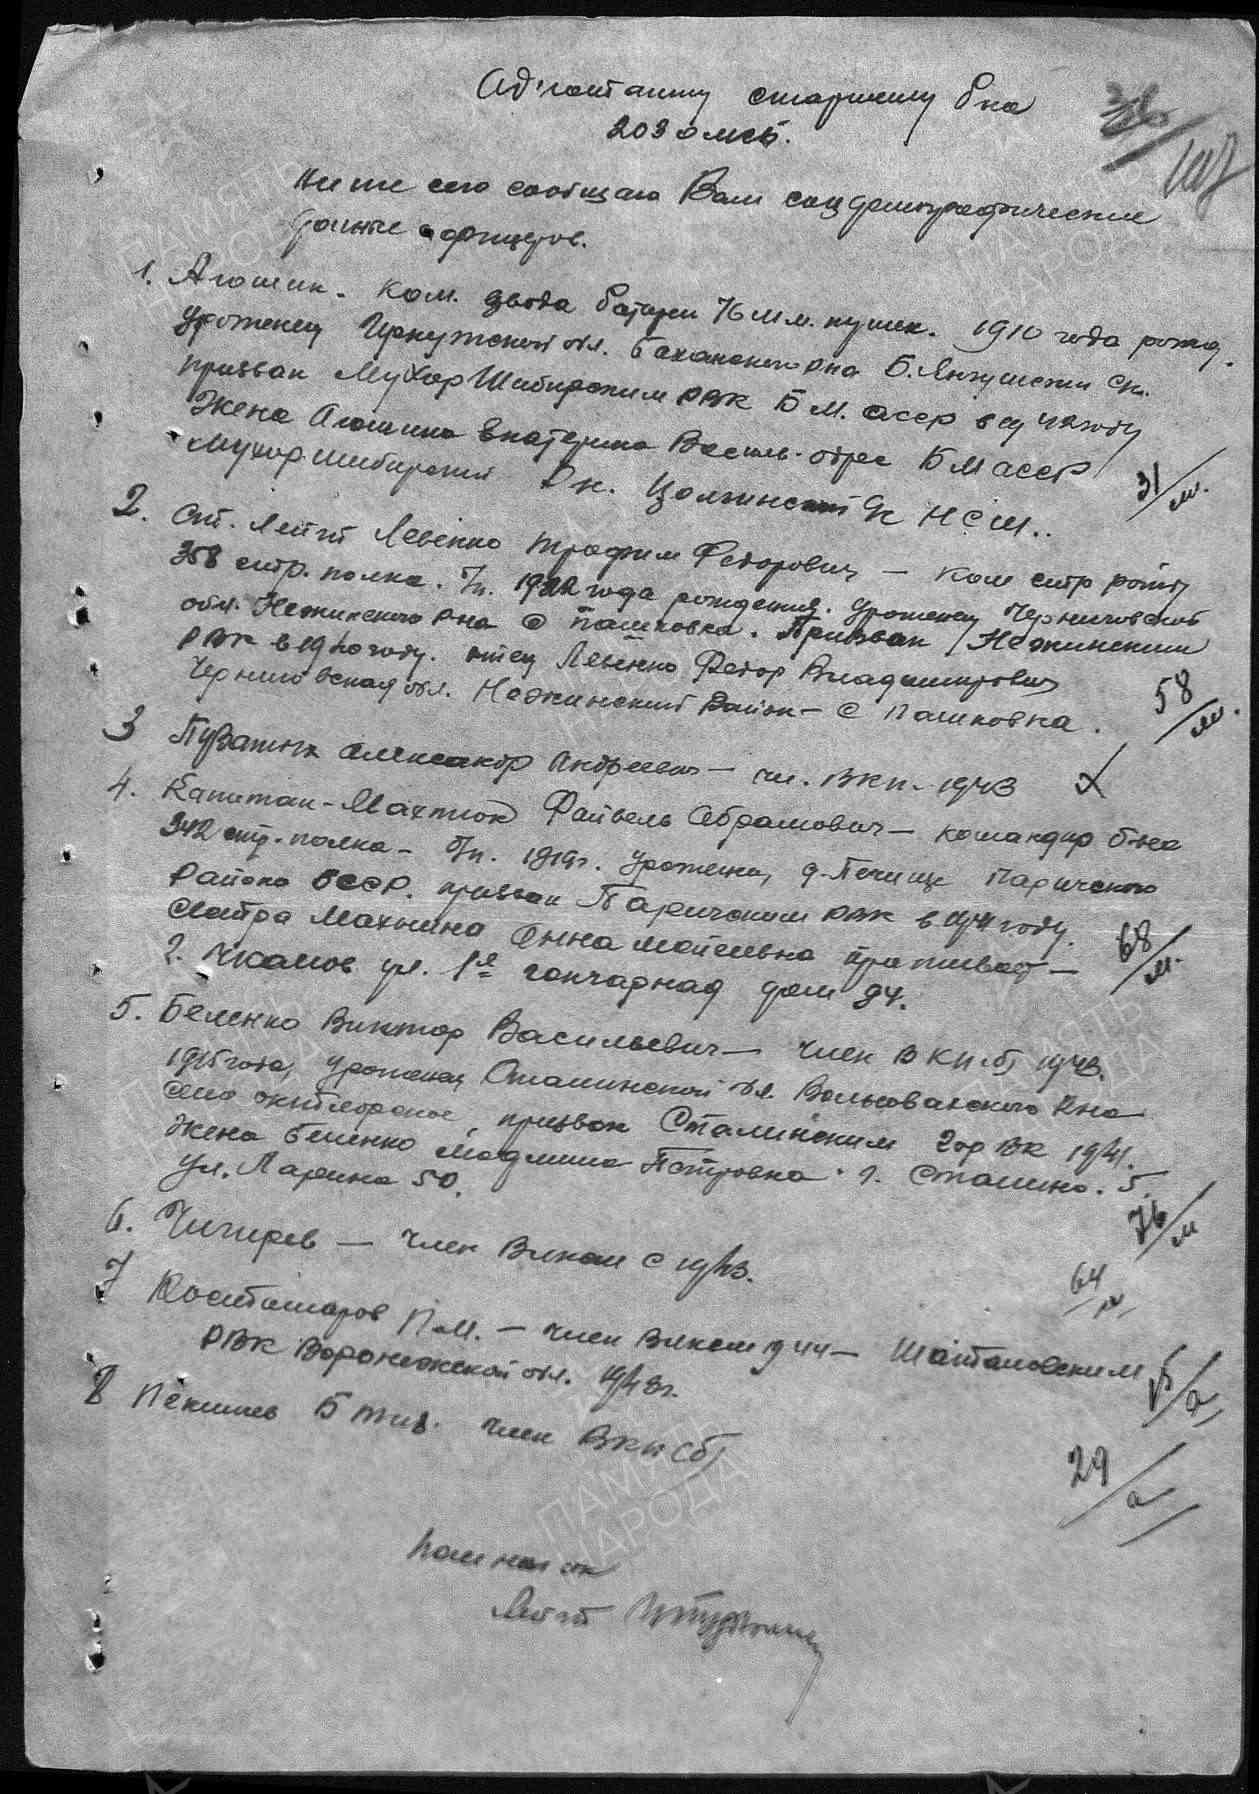 Адъютанту старшему б-на
203 омсб.
36
Ниже сего сообщаю Вам соцдемографические
данные офицеров.
1. Агошин. Ком. взвода батареи 76 мм. пушек. 1910 года рожд.
Уроженец Иркутской обл. Баханского р-на Б. с.
призван МухорШибирским РВК Б М. асср в году
Жена Агошина Екатерина Василь. адрес Б М асср
Мухоршибирский Рн. Цолгинский НСШ..
31/м.
2. Ст. Лейт Левенко Трофим Федорович — Ком стр роты
358 стр. полка. б/п. 1922 года рождения. Уроженец Черниговской
обл. Нежинского р-на с Пашковка. Призван Нежинским
РВК в 1940 году. отец Левенко Федор Владимирович
Черниговская обл. Нежинский Район — с Пашковка.
58/м.
3 Александр Андреев — чл. ВКП. 1943 X
4. Капитан — Махтюк Файвель Абрамович — командир б-на
342 стр. полка — б/п. 1919г. Уроженец д. Печище Паричского
Района БССР. призван Паричским РВК в 1941 году.
Сестра Махнина Анна Моисеевна проживает —
г. Чкалов ул. 1я гончарная дом 94.
68/м.
5. Беленко Виктор Васильевич — член ВКП(б) 1943.
1915 года, Уроженец Сталинской обл. Вольновахского Рна
село октябрьское, призван Сталинским гор ВК 1941.
Жена Беленко Петровна г. Сталино. 5.
ул. Ларина 50.
76/м
6. Чигирев — член Влксм с 1943.
64/м
7 П.М. — член Влксм 1944 — Шаталовским
РВК Воронежской обл. 1943г.
8 Пекишев Б член ВКП(б)
29/а
Лейт
ПАМЯТЬ
НАРОДА